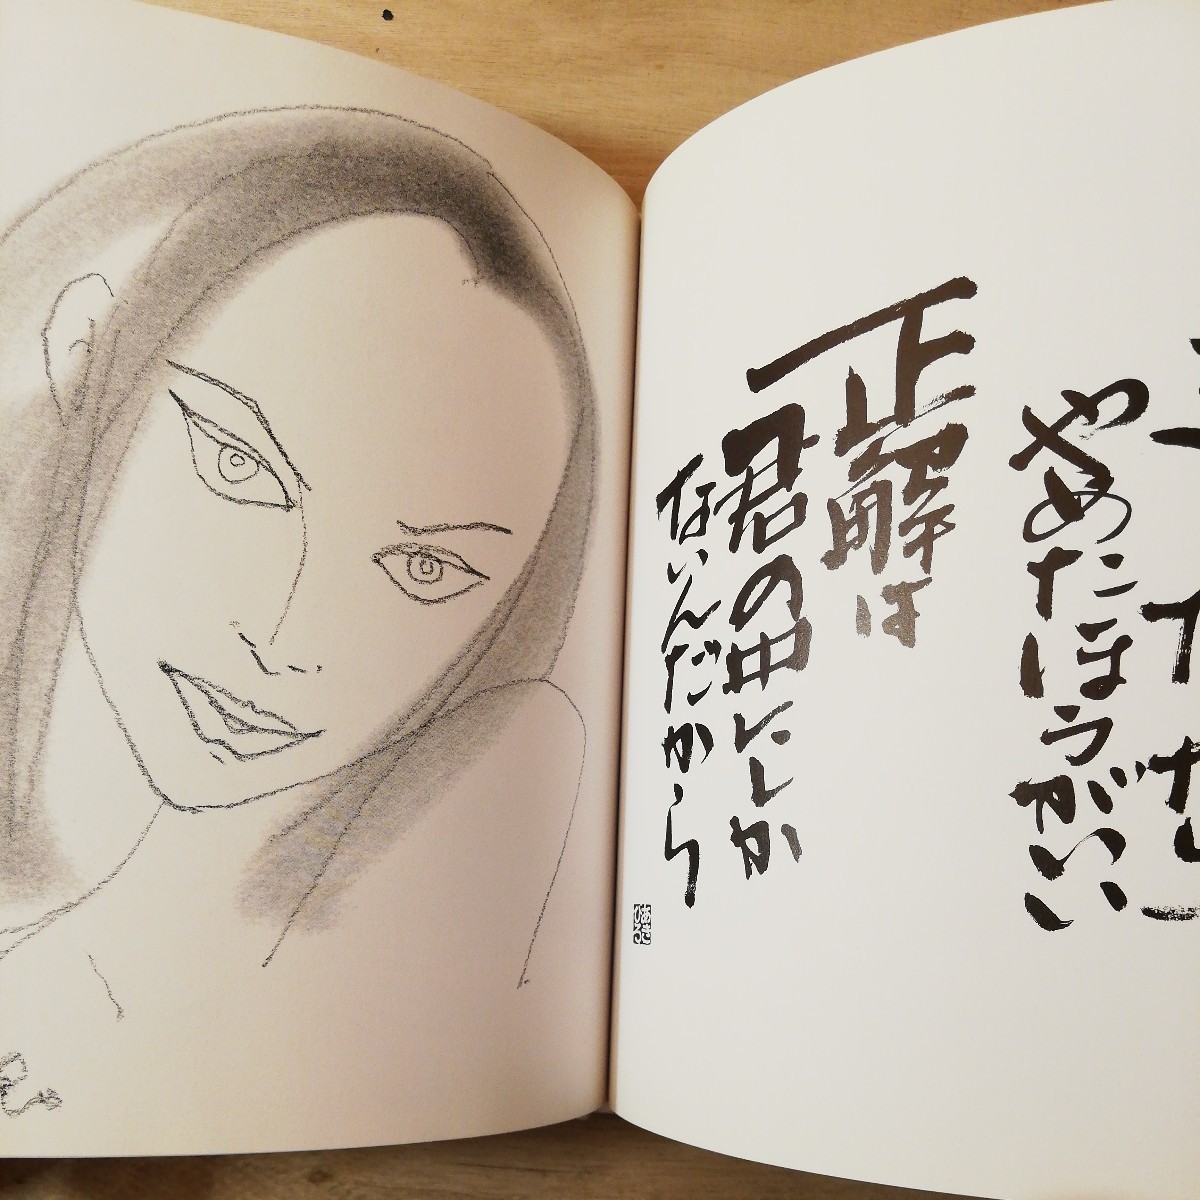 やめたほうがいい
正解は
君の中にしか
ないんだから
あき
ひろ